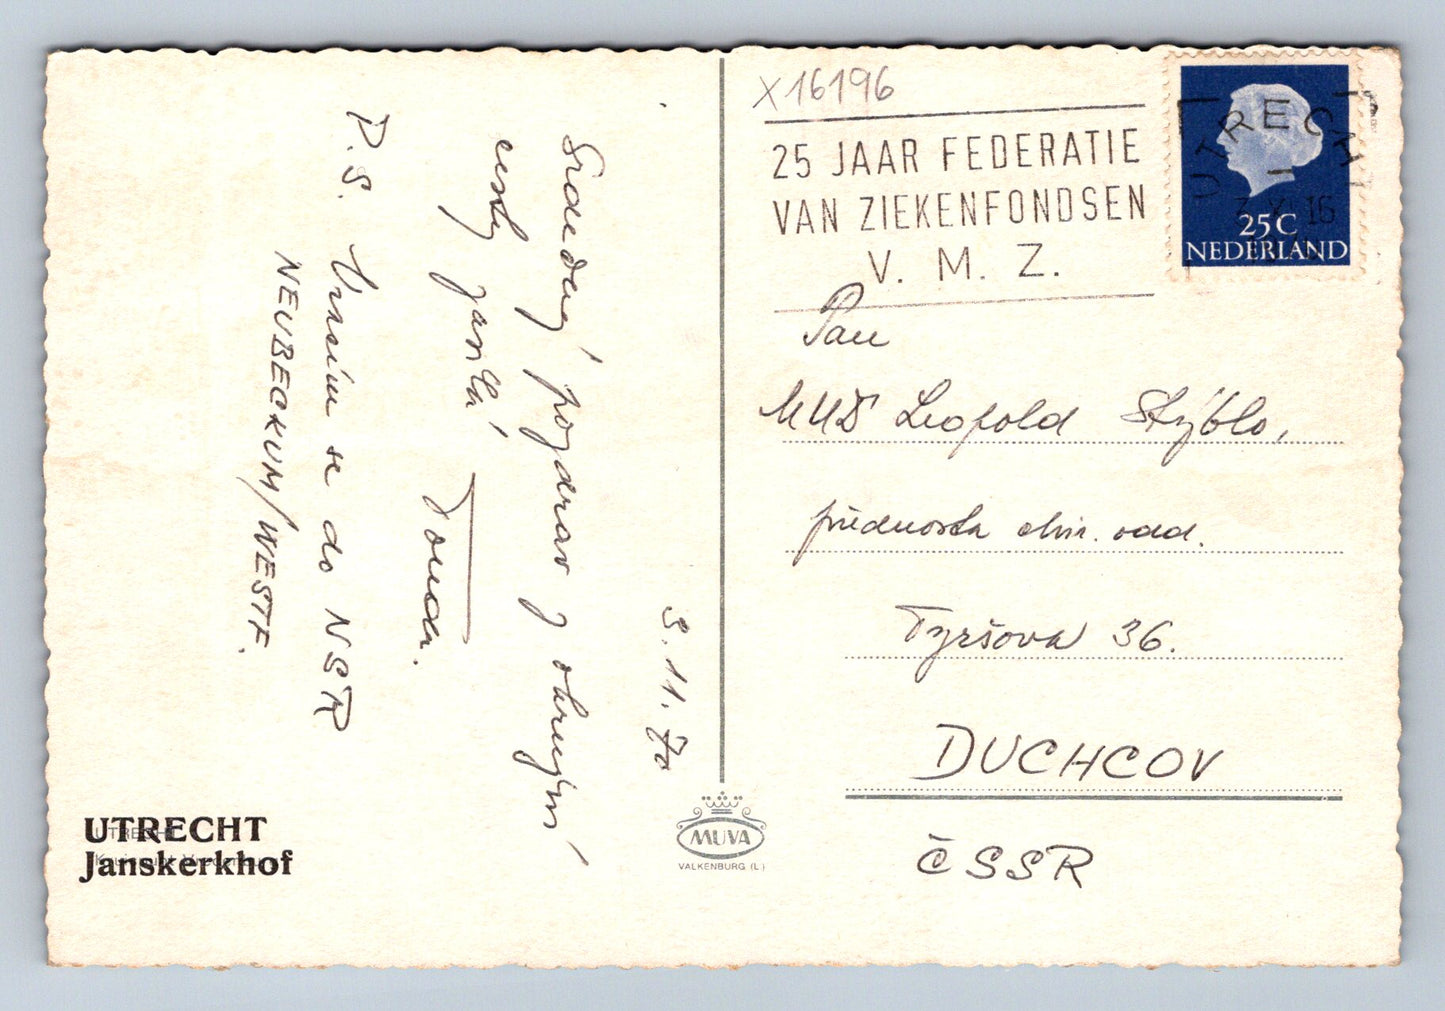 3.11.70
Srdečný pozdrav z okružní
cesty zasílá
Tonda.
P.S. Vracím se do NSR
NEUBECKUM/WESTF.
UTRECHT
Janskerkhof
UTRECHT
MUVA
VALKENBURG (L)
X16196
25 JAAR FEDERATIE
VAN ZIEKENFONDSEN
V. M. Z.
UTRECHT
25C
NEDERLAND
Pan
MUD Leopold Stýblo,
přednosta chir. odd.
Tyršova 36.
DUCHCOV
ČSSR